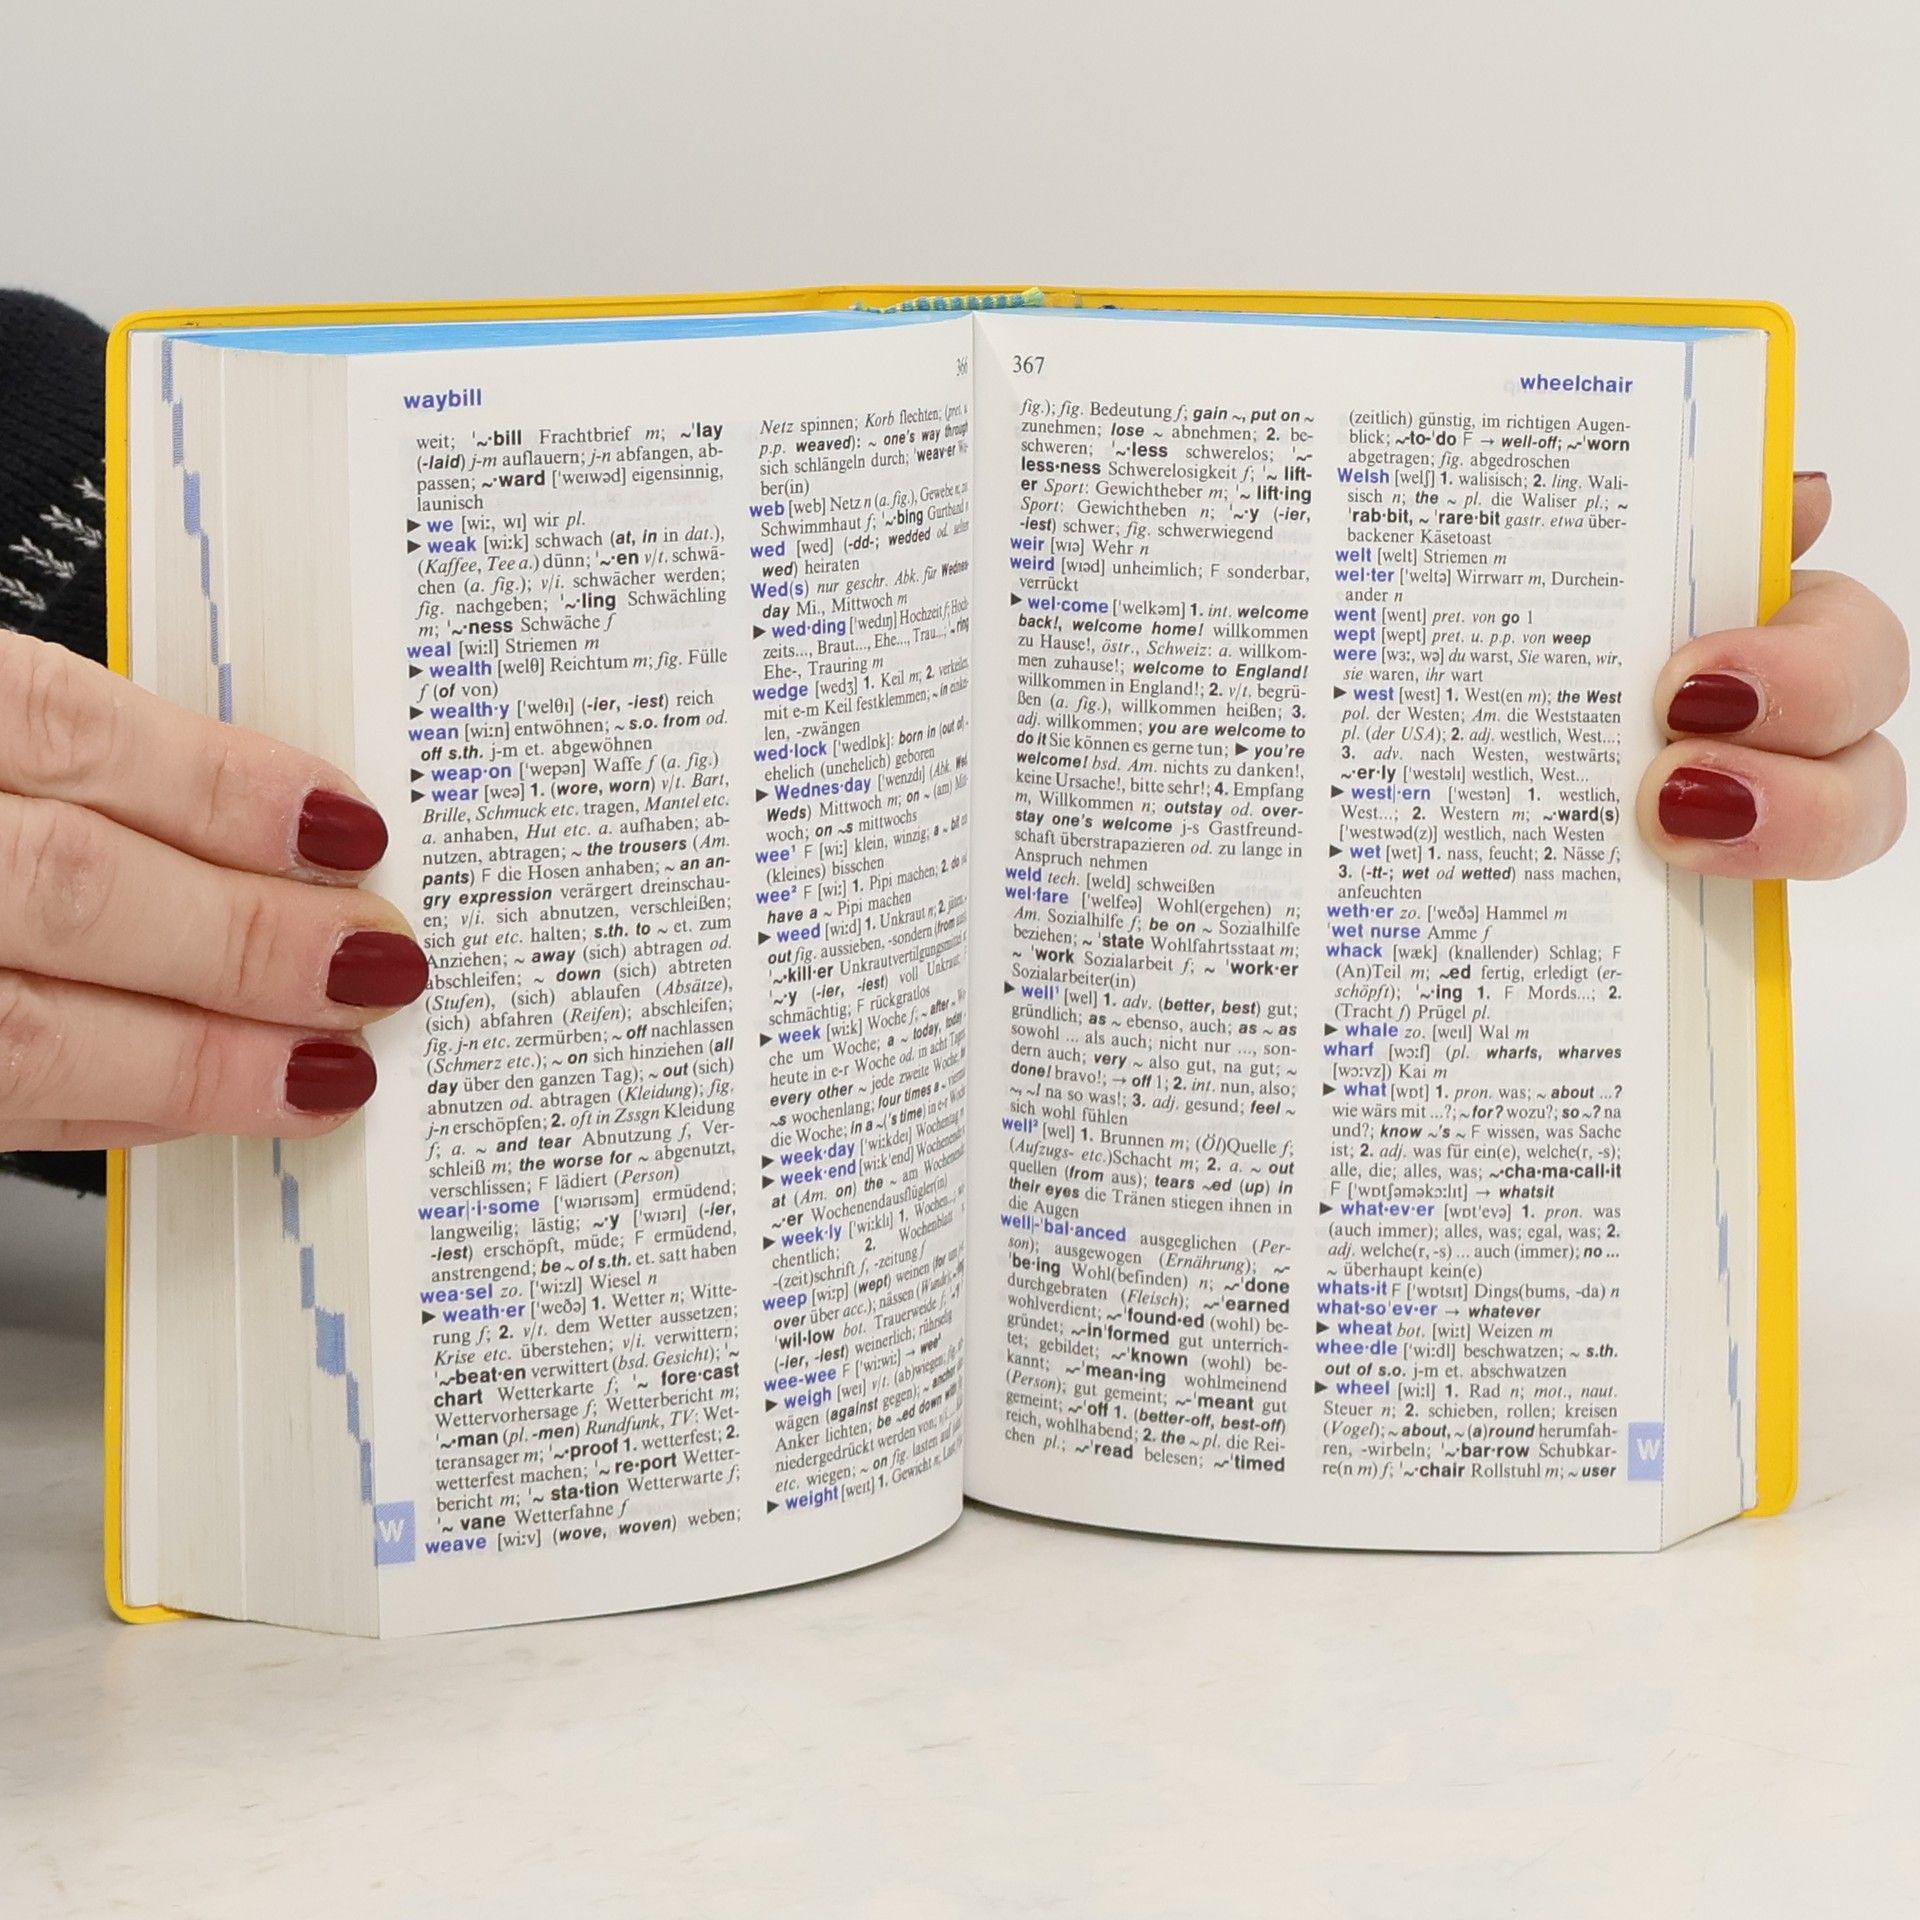 waybill
weit; '~·bill Frachtbrief m; ~'lay
(-laid) j-m auflauern; j-n abfangen, ab-
passen; ~·ward ['weɪwəd] eigensinnig,
launisch
► we [wiː, wɪ] wir pl.
► weak [wiːk] schwach (at, in in dat.),
(Kaffee, Tee a.) dünn; '~·en v/t. schwä-
chen (a. fig.); v/i. schwächer werden;
fig. nachgeben; '~·ling Schwächling
m; '~·ness Schwäche f
weal [wiːl] Striemen m
► wealth [welθ] Reichtum m; fig. Fülle
f (of von)
► wealth·y ['welθɪ] (-ier, -iest) reich
wean [wiːn] entwöhnen; ~ s.o. from od.
off s.th. j-m et. abgewöhnen
► weap·on ['wepən] Waffe f (a. fig.)
► wear [weə] 1. (wore, worn) v/t. Bart,
Brille, Schmuck etc. tragen, Mantel etc.
a. anhaben, Hut etc. a. aufhaben; ab-
nutzen, abtragen; ~ the trousers (Am.
pants) F die Hosen anhaben; ~ an an-
gry expression verärgert dreinschau-
en; v/i. sich abnutzen, verschleißen;
sich gut etc. halten; s.th. to ~ et. zum
Anziehen; ~ away (sich) abtragen od.
abschleifen; ~ down (sich) abtreten
(Stufen), (sich) ablaufen (Absätze),
(sich) abfahren (Reifen); abschleifen;
fig. j-n etc. zermürben; ~ off nachlassen
(Schmerz etc.); ~ on sich hinziehen (all
day über den ganzen Tag); ~ out (sich)
abnutzen od. abtragen (Kleidung); fig.
j-n erschöpfen; 2. oft in Zssgn Kleidung
f; a. ~ and tear Abnutzung f, Ver-
schleiß m; the worse for ~ abgenutzt,
verschlissen; F lädiert (Person)
wear|·i·some ['wɪərɪsəm] ermüdend;
langweilig; lästig; ~·y ['wɪərɪ] (-ier,
-iest) erschöpft, müde; F ermüdend,
anstrengend; be ~ of s.th. et. satt haben
wea·sel zo. ['wiːzl] Wiesel n
► weath·er ['weðə] 1. Wetter n; Witte-
rung f; 2. v/t. dem Wetter aussetzen;
Krise etc. überstehen; v/i. verwittern;
'~-beat·en verwittert (bsd. Gesicht); '~
chart Wetterkarte f; '~ fore·cast
Wettervorhersage f; Wetterbericht m;
'~·man (pl. -men) Rundfunk, TV: Wet-
teransager m; '~·proof 1. wetterfest; 2.
wetterfest machen; '~ re·port Wetter-
bericht m; '~ sta·tion Wetterwarte f;
'~ vane Wetterfahne f
weave [wiːv] (wove, woven) weben;
W
366
Netz spinnen; Korb flechten; (pret. u.
p.p. weaved): ~ one's way through
sich schlängeln durch; 'weav·er We-
ber(in)
web [web] Netz n (a. fig.), Gewebe n; zo.
Schwimmhaut f; '~·bing Gurtband n
wed [wed] (-dd-; wedded od. selten
wed) heiraten
Wed(s) nur geschr. Abk. für Wednes-
day Mi., Mittwoch m
► wed·ding ['wedɪŋ] Hochzeit f; Hoch-
zeits..., Braut..., Ehe..., Trau...; '~ ring
Ehe-, Trauring m
wedge [wedʒ] 1. Keil m; 2. verkeilen,
mit e-m Keil festklemmen; ~ in einkei-
len, -zwängen
wed·lock ['wedlɒk]: born in (out of) ~
ehelich (unehelich) geboren
► Wednes·day ['wenzdɪ] (Abk. Wed,
Weds) Mittwoch m; on ~ (am) Mitt-
woch; on ~s mittwochs
wee¹ F [wiː] klein, winzig; a ~ bit ein
(kleines) bisschen
wee² F [wiː] 1. Pipi machen; 2. do od.
have a ~ Pipi machen
► weed [wiːd] 1. Unkraut n; 2. jäten;
out fig. aussieben, -sondern (from aus);
'~·kill·er Unkrautvertilgungsmittel n;
'~·y (-ier, -iest) voll Unkraut; F
schmächtig; F rückgratlos
► week [wiːk] Woche f; ~ after ~ Wo-
che um Woche; a ~ today, today ~
heute in e-r Woche od. in acht Tagen;
every other ~ jede zweite Woche; for
~s wochenlang; four times a ~ viermal
die Woche; in a ~('s time) in e-r Woche
► week·day ['wiːkdeɪ] Wochentag m
► week·end [wiːk'end] Wochenende n;
at (Am. on) the ~ am Wochenende;
~·er Wochenendausflügler(in)
► week·ly ['wiːklɪ] 1. Wochen...; wö-
chentlich; 2. Wochenblatt
-(zeit)schrift f, -zeitung f
weep [wiːp] (wept) weinen (for um
over über acc.); nässen (Wunde);
'wil·low bot. Trauerweide f; '~·y
(-ier, -iest) weinerlich; rührselig
wee-wee F ['wiːwiː] → wee²
► weigh [weɪ] v/t. (ab)wiegen; fig. ab-
wägen (against gegen); ~ anchor
Anker lichten; be ~ed down with
niedergedrückt werden von;
etc. wiegen; ~ on fig. lasten auf
► weight [weɪt] 1. Gewicht n;
367
wheelchair
fig.); fig. Bedeutung f; gain ~, put on ~
zunehmen; lose ~ abnehmen; 2. be-
schweren; '~·less schwerelos; '~·
less·ness Schwerelosigkeit f; '~ lift-
er Sport: Gewichtheber m; '~ lift·ing
Sport: Gewichtheben n; '~·y (-ier,
-iest) schwer; fig. schwerwiegend
weir [wɪə] Wehr n
weird [wɪəd] unheimlich; F sonderbar,
verrückt
► wel·come ['welkəm] 1. int. welcome
back!, welcome home! willkommen
zu Hause!, östr., Schweiz: a. willkom-
men zuhause!; welcome to England!
willkommen in England!; 2. v/t. begrü-
ßen (a. fig.), willkommen heißen; 3.
adj. willkommen; you are welcome to
do it Sie können es gerne tun; ► you're
welcome! bsd. Am. nichts zu danken!,
keine Ursache!, bitte sehr!; 4. Empfang
m, Willkommen n; outstay od. over-
stay one's welcome j-s Gastfreund-
schaft überstrapazieren od. zu lange in
Anspruch nehmen
weld tech. [weld] schweißen
wel·fare ['welfeə] Wohl(ergehen) n;
Am. Sozialhilfe f; be on ~ Sozialhilfe
beziehen; ~ 'state Wohlfahrtsstaat m;
~ 'work Sozialarbeit f; ~ 'work·er
Sozialarbeiter(in)
► well¹ [wel] 1. adv. (better, best) gut;
gründlich; as ~ ebenso, auch; as ~ as
sowohl ... als auch; nicht nur ..., son-
dern auch; very ~ also gut, na gut; ~
done! bravo!; → off 1; 2. int. nun, also;
~, ~! na so was!; 3. adj. gesund; feel ~
sich wohl fühlen
well² [wel] 1. Brunnen m; (Öl)Quelle f;
(Aufzugs- etc.)Schacht m; 2. a. ~ out
quellen (from aus); tears ~ed (up) in
their eyes die Tränen stiegen ihnen in
die Augen
well|-'bal·anced ausgeglichen (Per-
son); ausgewogen (Ernährung); ~-
'be·ing Wohl(befinden) n; ~-'done
durchgebraten (Fleisch); ~-'earned
wohlverdient; ~-'found·ed (wohl) be-
gründet; ~-in'formed gut unterrich-
tet; gebildet; ~-'known (wohl) be-
kannt; ~-'mean·ing wohlmeinend
(Person); gut gemeint; ~-'meant gut
gemeint; ~-'off 1. (better-off, best-off)
reich, wohlhabend; 2. the ~ pl. die Rei-
chen pl.; ~-'read belesen; ~-'timed
(zeitlich) günstig, im richtigen Augen-
blick; ~-to-'do F → well-off; ~-'worn
abgetragen; fig. abgedroschen
Welsh [welʃ] 1. walisisch; 2. ling. Wali-
sisch n; the ~ pl. die Waliser pl.; ~
'rab·bit, ~ 'rare·bit gastr. etwa über-
backener Käsetoast
welt [welt] Striemen m
wel·ter ['weltə] Wirrwarr m, Durchein-
ander n
went [went] pret. von go 1
wept [wept] pret. u. p.p. von weep
were [wɜː, wə] du warst, Sie waren, wir,
sie waren, ihr wart
► west [west] 1. West(en m); the West
pol. der Westen; Am. die Weststaaten
pl. (der USA); 2. adj. westlich, West...;
3. adv. nach Westen, westwärts;
~·er·ly ['westəlɪ] westlich, West...
► west|·ern ['westən] 1. westlich,
West...; 2. Western m; ~·ward(s)
['westwəd(z)] westlich, nach Westen
► wet [wet] 1. nass, feucht; 2. Nässe f;
3. (-tt-; wet od wetted) nass machen,
anfeuchten
weth·er zo. ['weðə] Hammel m
'wet nurse Amme f
whack [wæk] (knallender) Schlag; F
(An)Teil m; ~ed fertig, erledigt (er-
schöpft); '~·ing 1. F Mords...; 2.
(Tracht f) Prügel pl.
► whale zo. [weɪl] Wal m
wharf [wɔːf] (pl. wharfs, wharves
[wɔːvz]) Kai m
► what [wɒt] 1. pron. was; ~ about ...?
wie wärs mit ...?; ~ for? wozu?; so ~? na
und?; know ~'s ~ F wissen, was Sache
ist; 2. adj. was für ein(e), welche(r, -s);
alle, die; alles, was; ~·cha·ma·call·it
F ['wɒtʃəməkɔːlɪt] → whatsit
► what·ev·er [wɒt'evə] 1. pron. was
(auch immer); alles, was; egal, was; 2.
adj. welche(r, -s) ... auch (immer); no ...
~ überhaupt kein(e)
whats·it F ['wɒtsɪt] Dings(bums, -da) n
what·so'ev·er → whatever
► wheat bot. [wiːt] Weizen m
whee·dle ['wiːdl] beschwatzen; ~ s.th.
out of s.o. j-m et. abschwatzen
► wheel [wiːl] 1. Rad n; mot., naut.
Steuer n; 2. schieben, rollen; kreisen
(Vogel); ~ about, ~ (a)round herumfah-
ren, -wirbeln; '~·bar·row Schubkar-
re(n m) f; '~·chair Rollstuhl m; ~ user
W